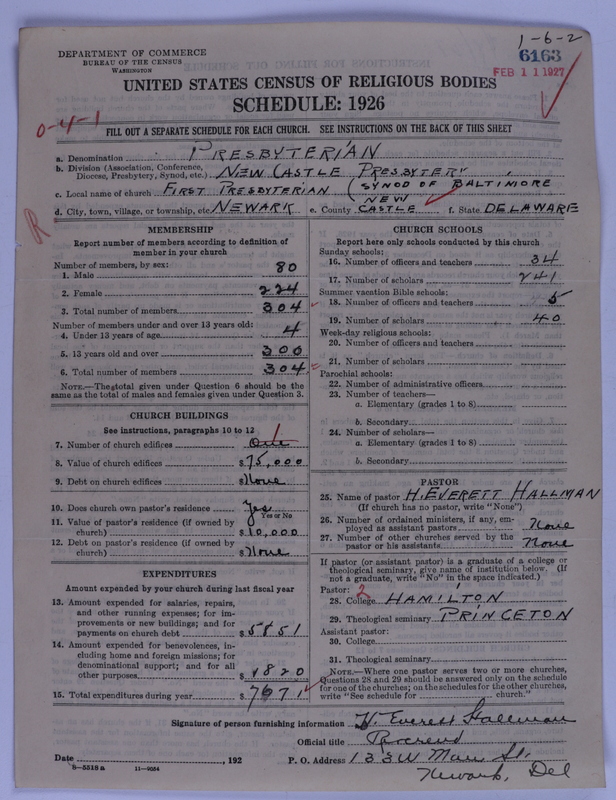 1-6-2
6163
FEB 11 1927
DEPARTMENT OF COMMERCE
BUREAU OF THE CENSUS
WASHINGTON
UNITED STATES CENSUS OF RELIGIOUS BODIES
SCHEDULE: 1926
0-4-1
FILL OUT A SEPARATE SCHEDULE FOR EACH CHURCH. SEE INSTRUCTIONS ON THE BACK OF THIS SHEET
a. Denomination PRESBYTERIAN
b. Division (Association, Conference, Diocese, Presbytery, Synod, etc.) NEW CASTLE PRESBYTERY
c. Local name of church FIRST PRESBYTERIAN (SYNOD OF BALTIMORE
d. City, town, village, or township, etc. NEWARK e. County NEW CASTLE f. State DELAWARE
R
MEMBERSHIP
Report number of members according to definition of
member in your church
Number of members, by sex:
1. Male 80
2. Female 224
3. Total number of members 304
Number of members under and over 13 years old:
4. Under 13 years of age 4
5. 13 years old and over 300
6. Total number of members 304
NOTE.—The total given under Question 6 should be the
same as the total of males and females given under Question 3.
CHURCH BUILDINGS
See instructions, paragraphs 10 to 12
7. Number of church edifices One 1
8. Value of church edifices $75,000
9. Debt on church edifices $None
10. Does church own pastor's residence Yes
Yes or No
11. Value of pastor's residence (if owned by
church) $10,000
12. Debt on pastor's residence (if owned by
church) $None
EXPENDITURES
Amount expended by your church during last fiscal year
13. Amount expended for salaries, repairs,
and other running expenses; for im-
provements or new buildings; and for
payments on church debt $5851
14. Amount expended for benevolences, in-
cluding home and foreign missions; for
denominational support; and for all
other purposes $1820
15. Total expenditures during year $7671
CHURCH SCHOOLS
Report here only schools conducted by this church
Sunday schools:
16. Number of officers and teachers 34
17. Number of scholars 241
Summer vacation Bible schools:
18. Number of officers and teachers 5
19. Number of scholars 40
Week-day religious schools:
20. Number of officers and teachers
21. Number of scholars
Parochial schools:
22. Number of administrative officers
23. Number of teachers—
a. Elementary (grades 1 to 8)
b. Secondary
24. Number of scholars—
a. Elementary (grades 1 to 8)
b. Secondary
PASTOR
25. Name of pastor H. EVERETT HALLMAN
(If church has no pastor, write "None")
26. Number of ordained ministers, if any, em-
ployed as assistant pastors None
27. Number of other churches served by the
pastor or his assistants None
If pastor (or assistant pastor) is a graduate of a college or
theological seminary, give name of institution below. (If
not a graduate, write "No" in the space indicated.)
Pastor: 2
28. College HAMILTON
29. Theological seminary PRINCETON
Assistant pastor:
30. College
31. Theological seminary
NOTE.—Where one pastor serves two or more churches,
Questions 28 and 29 should be answered only on the schedule
for one of the churches; on the schedules for the other churches,
write "See schedule for church."
Signature of person furnishing information H. Everett Hallman
Official title Reverend
Date , 192 P. O. Address 133 W Main St.
8-5518a 11-9034 Newark, Del